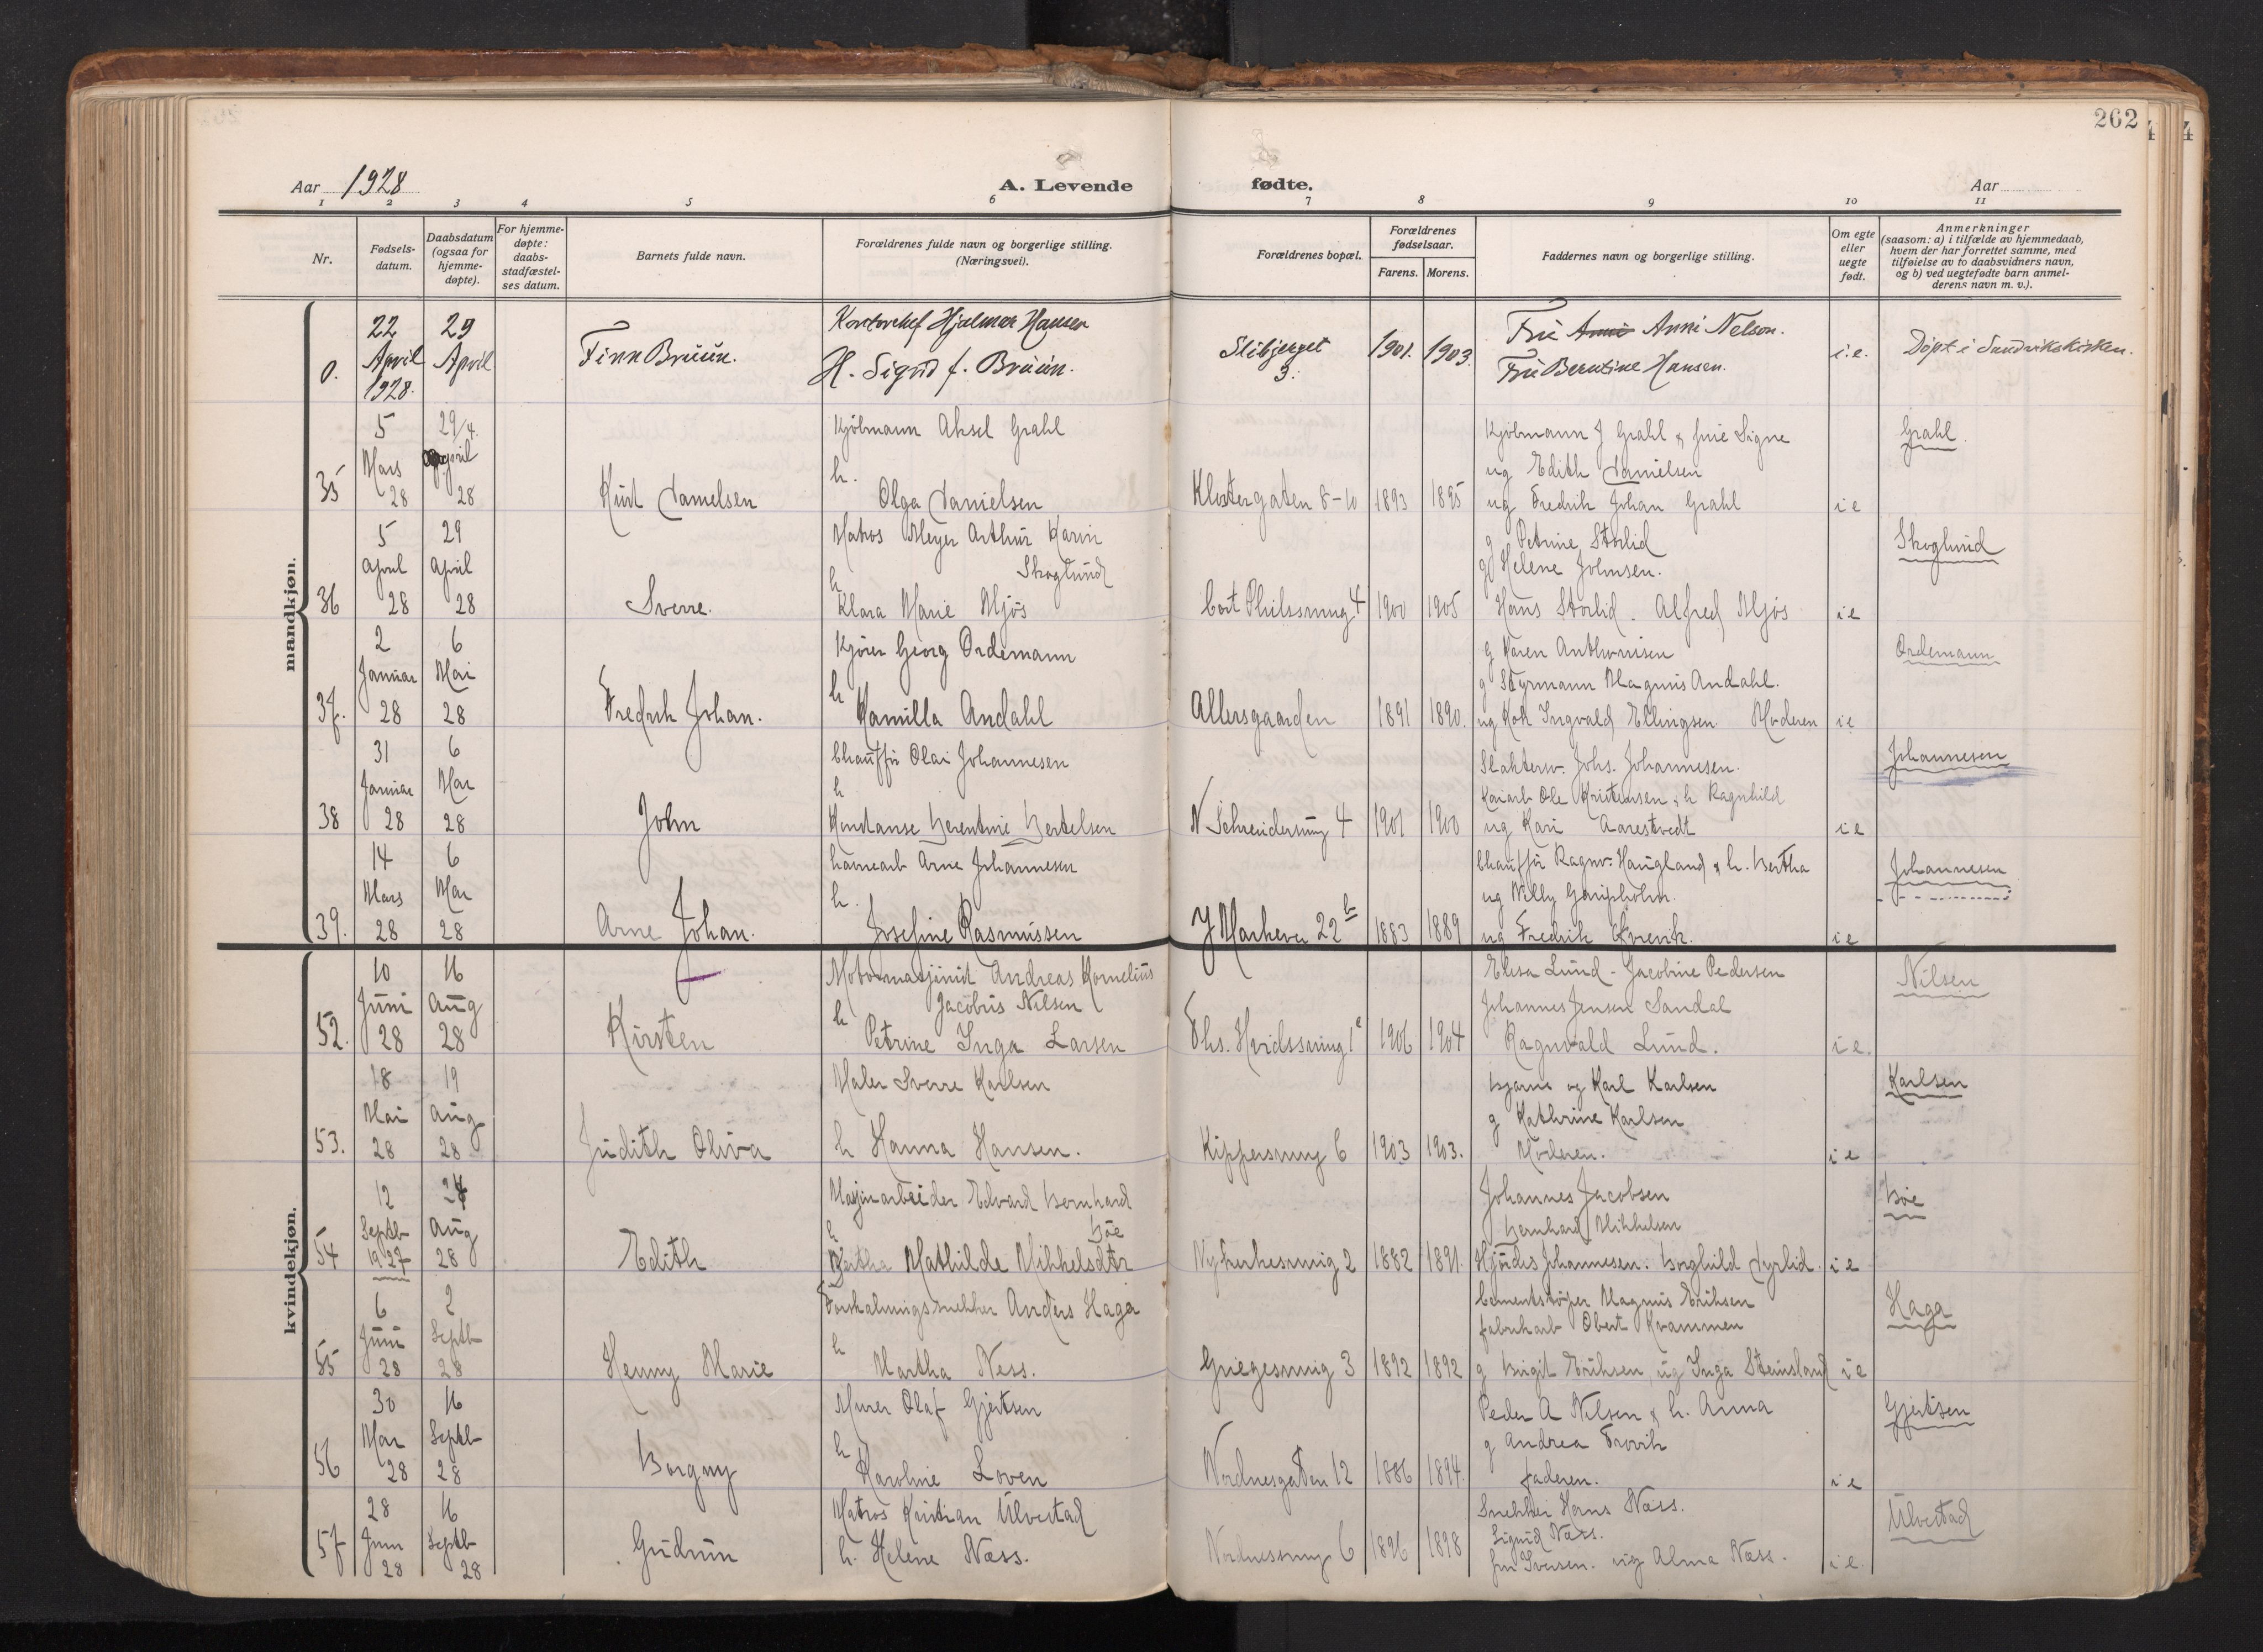 262
Aar 1928
A. Levende
fødte.
Aar
1 2 3 4 5 6 7 8 9 10 11
Nr.
Fødsels-
datum.
Daabsdatum
(ogsaa for
hjemme-
døpte).
For hjemme-
døpte:
daabs-
stadfæstel-
ses datum.
Barnets fulde navn.
Forældrenes fulde navn og borgerlige stilling.
(Næringsvei).
Forældrenes bopæl.
Forældrenes
fødselsaar.
Farens. Morens.
Faddernes navn og borgerlige stilling.
Om egte
eller
uegte
født.
Anmerkninger
(saasom: a) i tilfælde av hjemmedaab,
hvem der har forrettet samme, med
tilføielse av to daabsvidners navn,
og b) ved uegtefødte barn anmel-
derens navn m. v.).
mandkjøn.
0.
22
April
1928.
29
April
Finn Bruun.
Kontorchef Hjalmar Hansen
H. Sigrid f. Bruun.
3.
1901. 1903.
Fru Anni Anni Nelson.
Fru Berntine Hansen.
i.e.
Døpt i Sandvikskirken.
35
5
Mars
28
29/4.
April
28
Kurt Danielsen
Kjøbmann Aksel Grahl
h.
Olga Danielsen
Klostergaten 8-10
1893 1895
Kjøbmann J Grahl & frue Signe
ug Edith Danielsen
ug Fredrik Johan Grahl
i e
Grahl
36
5
April
28
29
April
28
Sverre.
Matros Meyer Arthur Karin
Skoglund
h
Klara Marie Mjøs
Cort Philssmug 4
1900 1905
g Petrine Storlid
g Helene Johnsen.
Hans Storlid. Alfred Mjøs
i e
Skoglund
37.
2
Januar
28
6
Mai
28
Fredrik Johan.
Kjører Georg Ordemann
h
Kamilla Andahl
Allersgaarden
1891 1890.
g Karen Anthonisen
g Styrmann Magnus Andahl.
ug Kok Ingvald Ellingsen Moderen
i e
Ordemann
38
31
Januar
28
6
Mai
28
John
Chauffør Olai Johannesen
h
Konstanse Berentine Bertelsen
N Schreudersmug 4
1901 1900
Slakterv. Johs. Johannesen.
Kaiarb Ole Kristensen & h Ragnhild
ug Kari Aarestvedt
i e
Johannesen
39.
14
Mars
28
6
Mai
28
Arne Johan.
havnearb Arne Johannesen
h.
Josefine Rasmussen
Y Markevei 22 b
1883 1889
Chauffør Ragnv. Haugland & h. Bertha
ug Willy
ug Fredrik
i e
Johannesen
kvindekjøn.
52.
10
Juni
28
16
Aug
28
Kirsten
Motormaskinist Andreas Kornelius
Jacobus Nilsen
h
Petrine Inga Larsen
Ths. Hvidssmug 1 e
1906 1904
Elisa Lund - Jacobine Pedersen
Johannes Jensen Sandal
Ragnvald Lund.
i e.
Nilsen
53.
18
Mai
28
19
Aug
28
Judith Oliva
Maler Sverre Karlsen
h Hanna Hansen.
Kippersmug 6
1903 1903.
Bjarne og Karl Karlsen
g Kathrine Karlsen
Moderen.
i e
Karlsen
54
12
Septb
1927
24
Aug
28
Edith
Masjinarbeider Edvard Bernhard
Bøe
h
Bertha Mathilde Mikkelsdtr
Nykirkesmug 2
1882 1891.
Johannes Jacobsen
Bernhard Mikkelsen
Hjørdis Johannesen. Borghild Dyrlid.
i e
Bøe
55
6
Juni
28
2
Septb
28
Henny Marie
Forskalningssnekker Anders Haga
h
Martha Ness.
Griegesmug 3
1892 1892
Cementstøper Magnus Eriksen
fabrikarb Obert Kvammen
g Birgit Eriksen, ug Inga Steinsland
i e
Haga
56
30
Mai
28
16
Septb
28
Borgny
Murer Olaf Gjertsen
h
Karoline Loven
Nordnesgaten 12
1886 1894.
Peder A Nilsen & h. Anna
g Andrea Frovik
faderen.
i e
Gjertsen
57
28
Juni
28
16
Septb
28
Gudrun
Matros Kristian Ulvestad
h. Helene Næss.
Nordnessmug 6
1896 1898
Snekker Hans Næss.
Sigrid Næss.
fru Iversen. ug Alma Næss.
i e.
Ulvestad